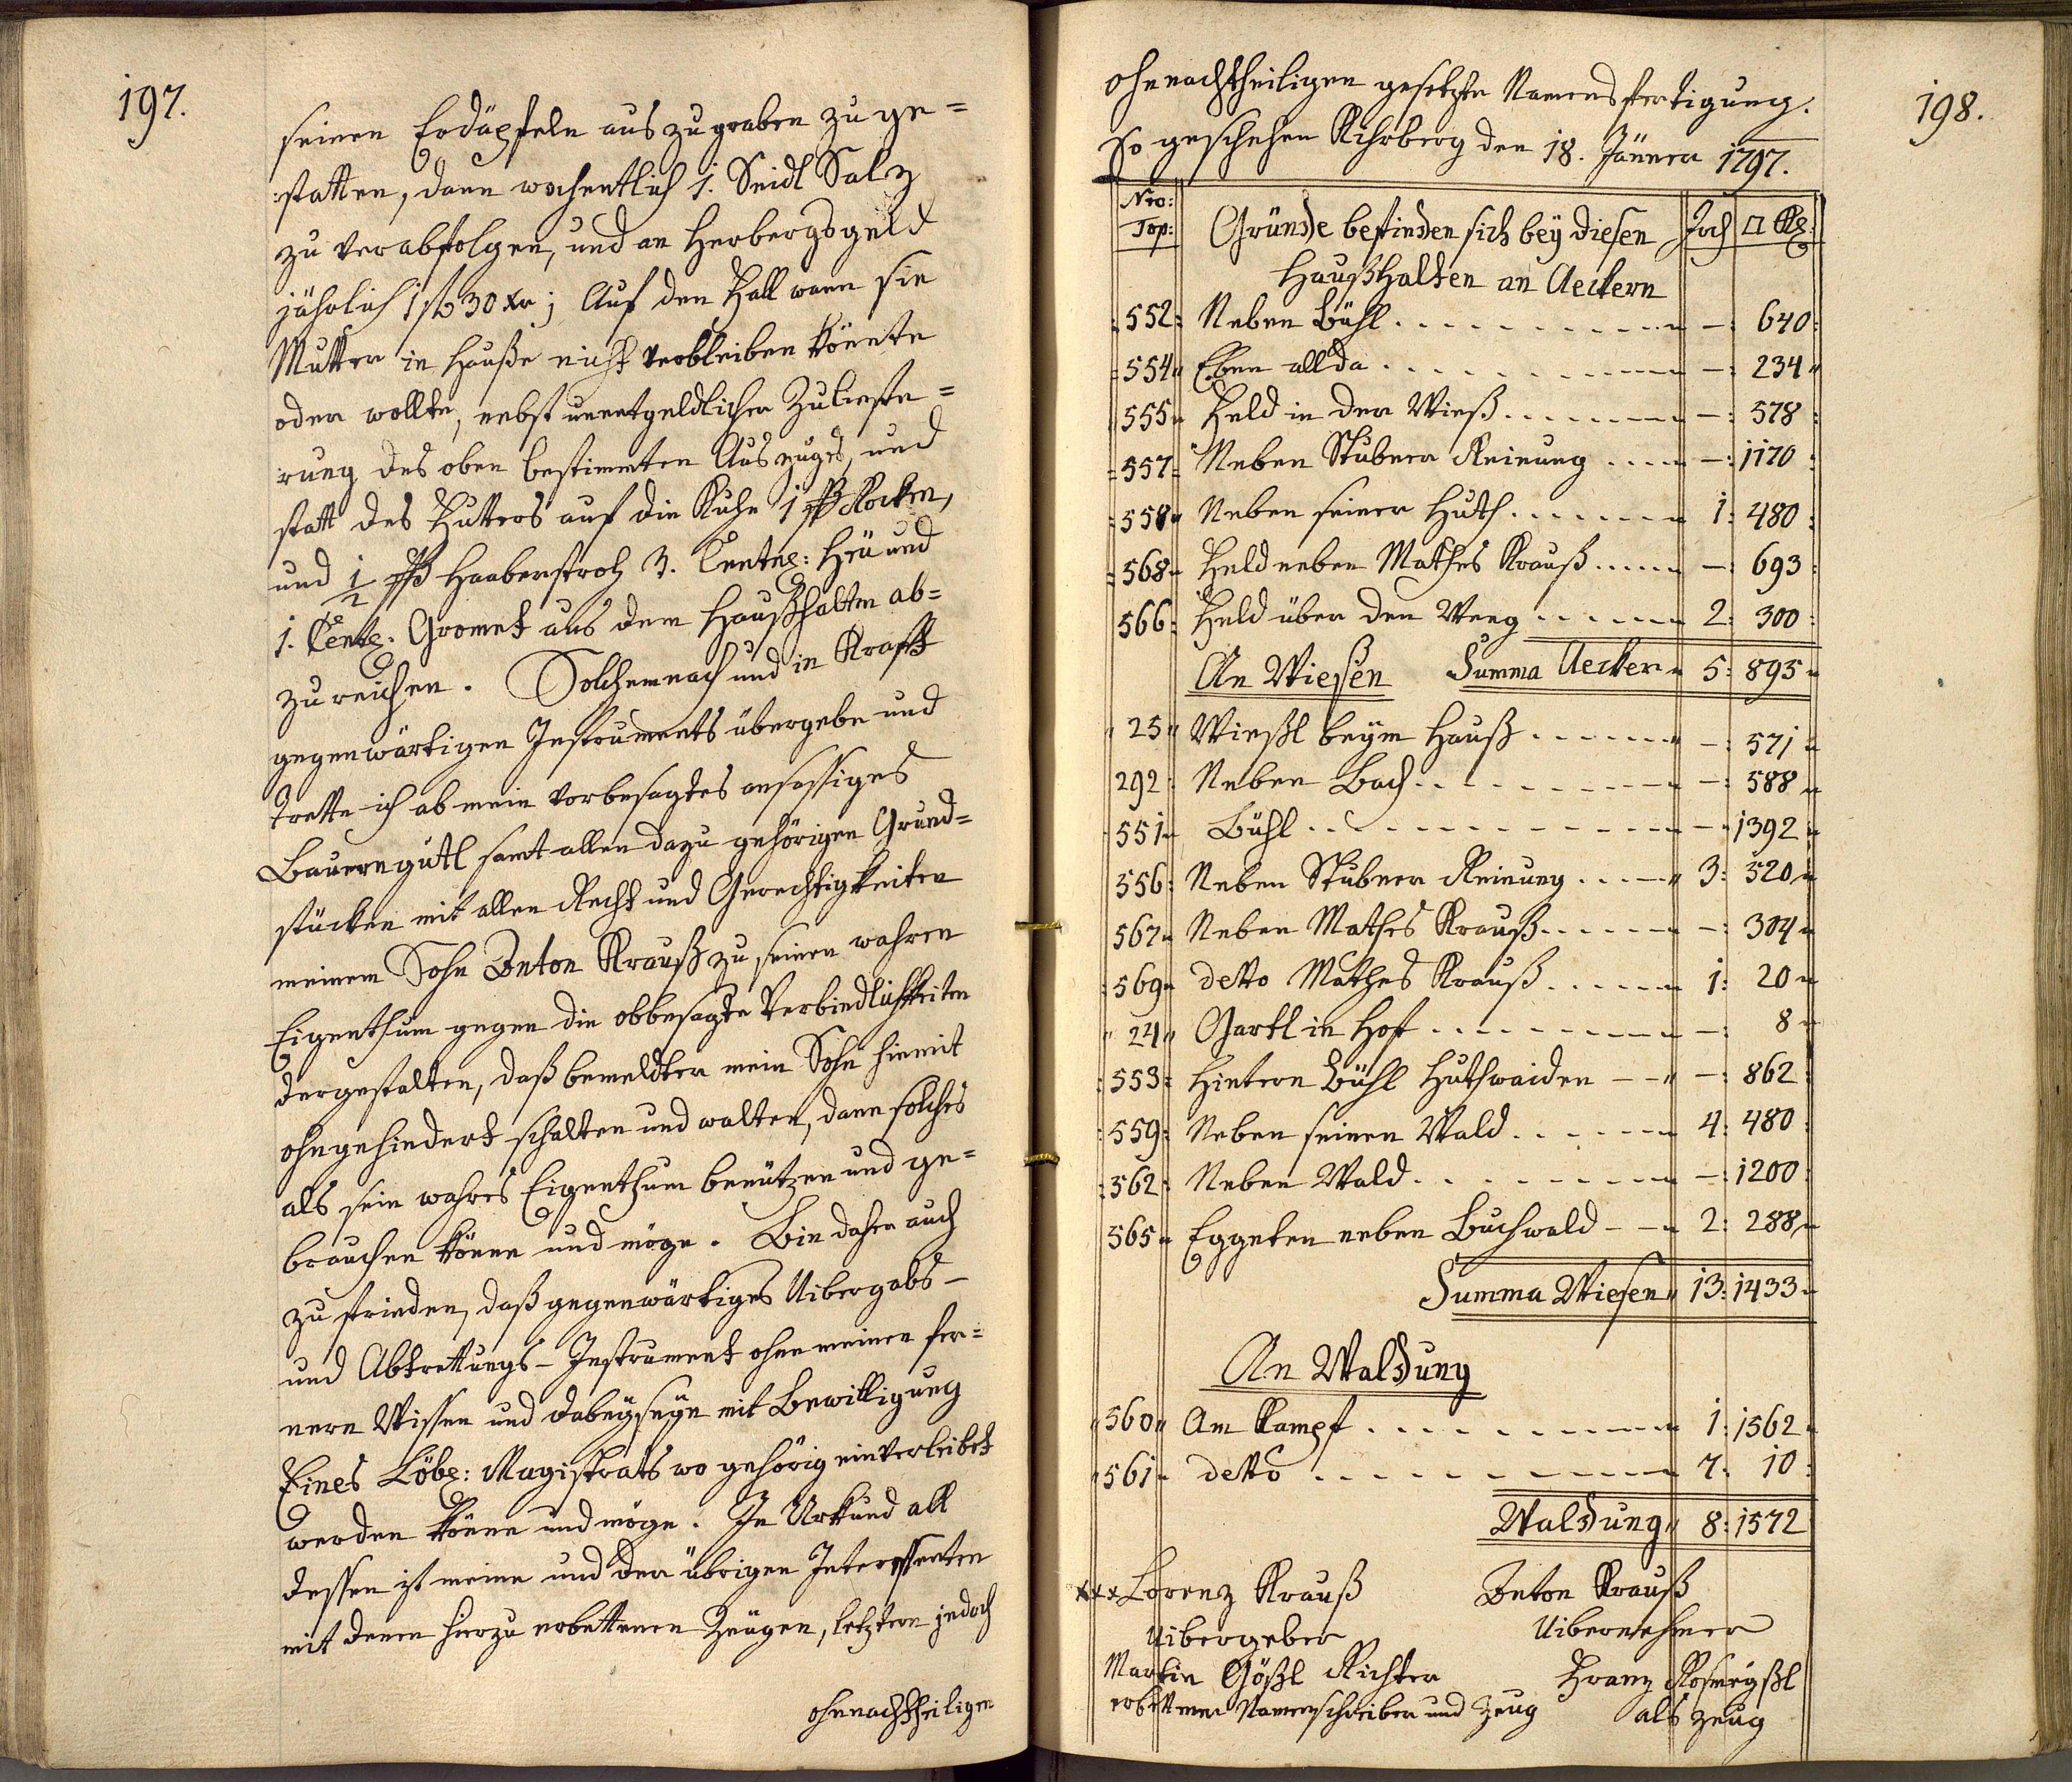 197.
seinen Erdäpfeln auszugraben zu ge=
statten, dann wochentlich 1. Seidl Salz
zu verabfolgen, und an Herbergsgeld
jährlich 1 f 30 xr; Auf den Fall wann sie
Mutter in Hauße nicht verbleiben könnte
oder wollte, nebst unentgeldlicher Zuliefe=
rung des oben bestimmten Auszugs, und
statt des Futters auf die Kuhe 1 ßß Rocken,
und 1/2 ßß Haaberstroh 3. Centne: Heü und
1. Cente: Gromet aus dem Haußhalten ab=
zureichen. Solchemnach und in Krafft
gegenwärtigen Instruments übergebe und
trette ich ab mein vorbesagtes ansässiges
Bauerngütl samt allen dazu gehörigen Grund=
stücken mit allen Recht und Gerechtigkeiten
meinem Sohn Anton Krauß zu seinen wahren
Eigenthum gegen die obbesagte Verbindlichkeiten
dergestalten, daß bemeldter mein Sohn hiemit
ohngehindert schalten und walten, dann solches
als sein wahres Eigenthum benützen und ge=
brauchen könne und möge. Bin daher auch
zu frieden, daß gegenwärtiges Uibergabs-
und Abtrettungs-Instrument ohne meinen fer=
nern Wissen und dabeyseyn mit Bewilligung
Eines Löbe: Magistrats wo gehörig einverleibet
werden könne und möge. In Urkund all
dessen ist meine und der übrigen Interessenten
mit denen hierzu erbettenen Zeügen, letztern jedoch
ohnnachtheiligen
198.
ohnnachtheiligen gesetzte Namensfertigung.
So geschehen Rihrberg den 18. Jänner 1797.
Nro: Top: Gründe befinden sich bey diesen Joch □ Kl:
Haußhalten an Aeckern
552: Neben Bühl - : 640:
554" Eben allda - : 234"
555" Feld in der Wieß - : 578:
557" Neben Stubner Reinung - : 1170:
558" Neben seiner Huth 1: 480:
568" Feld neben Mathes Krauß - : 693:
566: Feld über den Weeg 2: 300:
An Wiesen Summa Aecker" 5: 895"
"25" Wießl beym Hauß - : 571"
292: Neben Bach - : 588"
551" Bühl - " 1392"
556: Neben Stubner Reinung 3: 520"
567" Neben Mathes Krauß - : 304"
569" detto Mathes Krauß 1: 20"
"24" Gartl in Hof - : 8"
553: Hintern Bühl Huthwaiden - : 862:
559: Neben seinen Wald 4: 480:
562: Neben Wald - : 1200:
565" Eggeten neben Buchwald 2: 288"
Summa Wiesen" 13: 1433"
An Waldung
"560" Am Kampf 1: 1562"
"561" detto 7: 10:
Waldung" 8: 1572
xxx Lorenz Krauß Anton Krauß
Uibergeber Uibernehmer
Martin Gößl Richter Franz
erbettener Namenschreiber und Zeug als Zeug